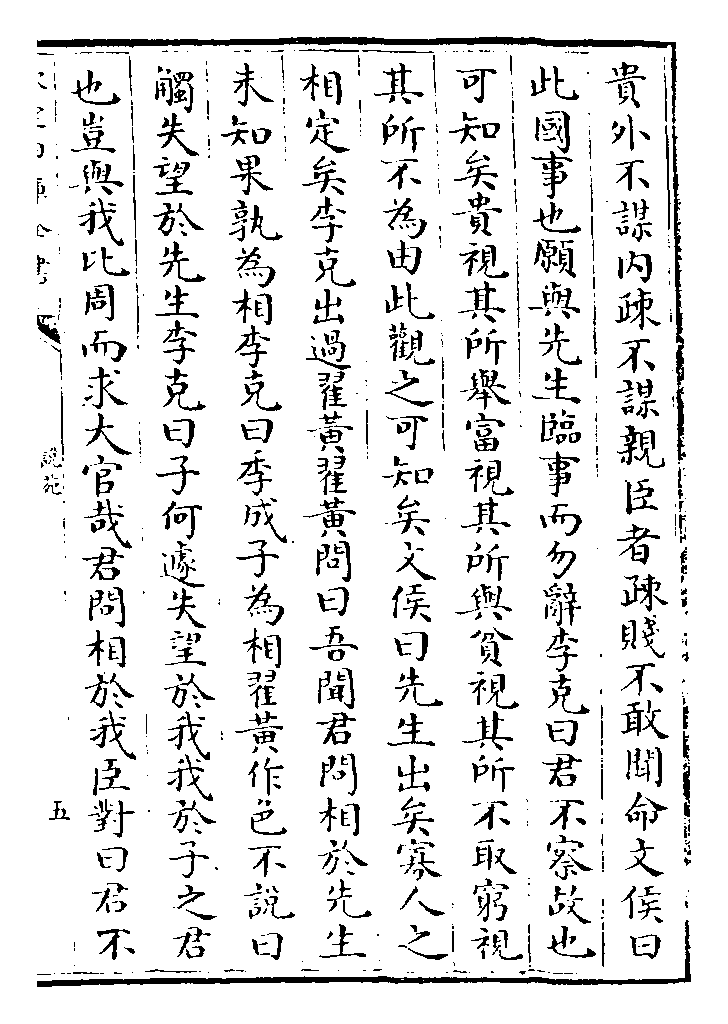 貴外不謀内疎不謀親臣者疎賤不敢聞命文侯曰
此國事也願與先生臨事而勿辭李克曰君不察故也
可知矣貴視其所舉富視其所與貧視其所不取窮視
其所不為由此觀之可知矣文侯曰先生出矣寡人之
相定矣李克出過翟黃翟黃問曰吾聞君問相於先生
未知果孰為相李克曰季成子為相翟黃作色不說曰
觸失望於先生李克曰子何遽失望於我我於子之君
也豈與我比周而求大官哉君問相於我臣對曰君不
欽定四庫全書
說苑
五